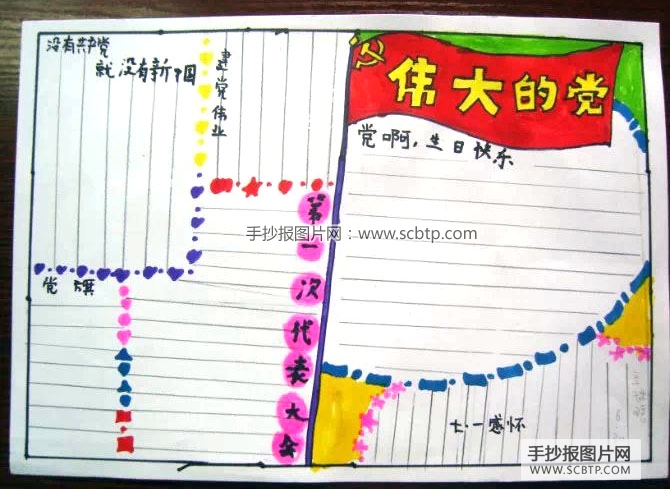 没有共产党
就没有新中国
建党伟业
伟大的党
党啊,生日快乐
第一次代表大会
手抄报图片网:www.scbtp.com
党旗
七·一感怀
手抄报图片网
WWW.SCBTP.COM